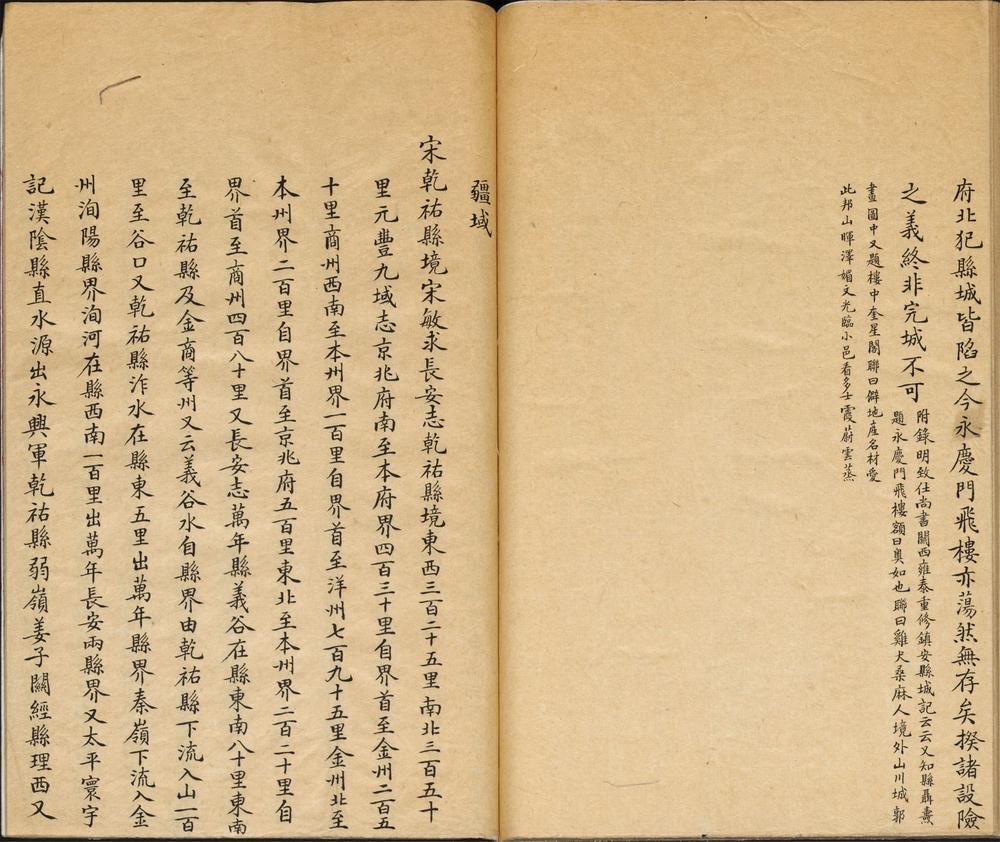 府北犯縣城皆陷之今永慶門飛樓亦蕩然無存矣揆諸設險
之義終非完城不可
附錄明致仕尚書關西雍泰重修鎮安縣城記云云又知縣聶燾
題永慶門飛樓額曰奧如也聯曰雞犬桑麻人境外山川城郭
畫圖中又題樓中奎星閣聯曰僻地産名材愛
此邦山暉澤媚文光臨小邑看多士霞蔚雲蒸
疆域
宋乾祐縣境宋敏求長安志乾祐縣境東西三百二十五里南北三百五十
里元豐九域志京兆府南至本府界四百三十里自界首至金州二百五
十里商州西南至本州界一百里自界首至洋州七百九十五里金州北至
本州界二百里自界首至京兆府五百里東北至本州界二百二十里自
界首至商州四百八十里又長安志萬年縣義谷在縣東南八十里東南
至乾祐縣及金商等州又云義谷水自縣界由乾祐縣下流入山一百
里至谷口又乾祐縣泎水在縣東五里出萬年縣界秦嶺下流入金
州洵陽縣界洵河在縣西南一百里出萬年長安兩縣界又太平寰宇
記漢陰縣直水源出永興軍乾祐縣弱嶺姜子關經縣理西又